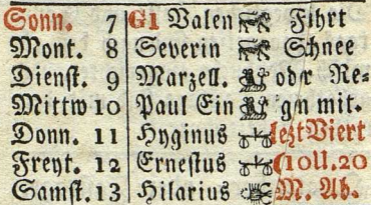 Sonn. 7 G1 Valen Fährt
Mont. 8 Severin Schnee
Dienst. 9 Marzell. oder Re-
Mittw 10 Paul Ein gn mit.
Donn. 11 Hyginus leztViert
Freyt. 12 Ernestus (10U.20
Samst. 13 Hilarius M. Ab.